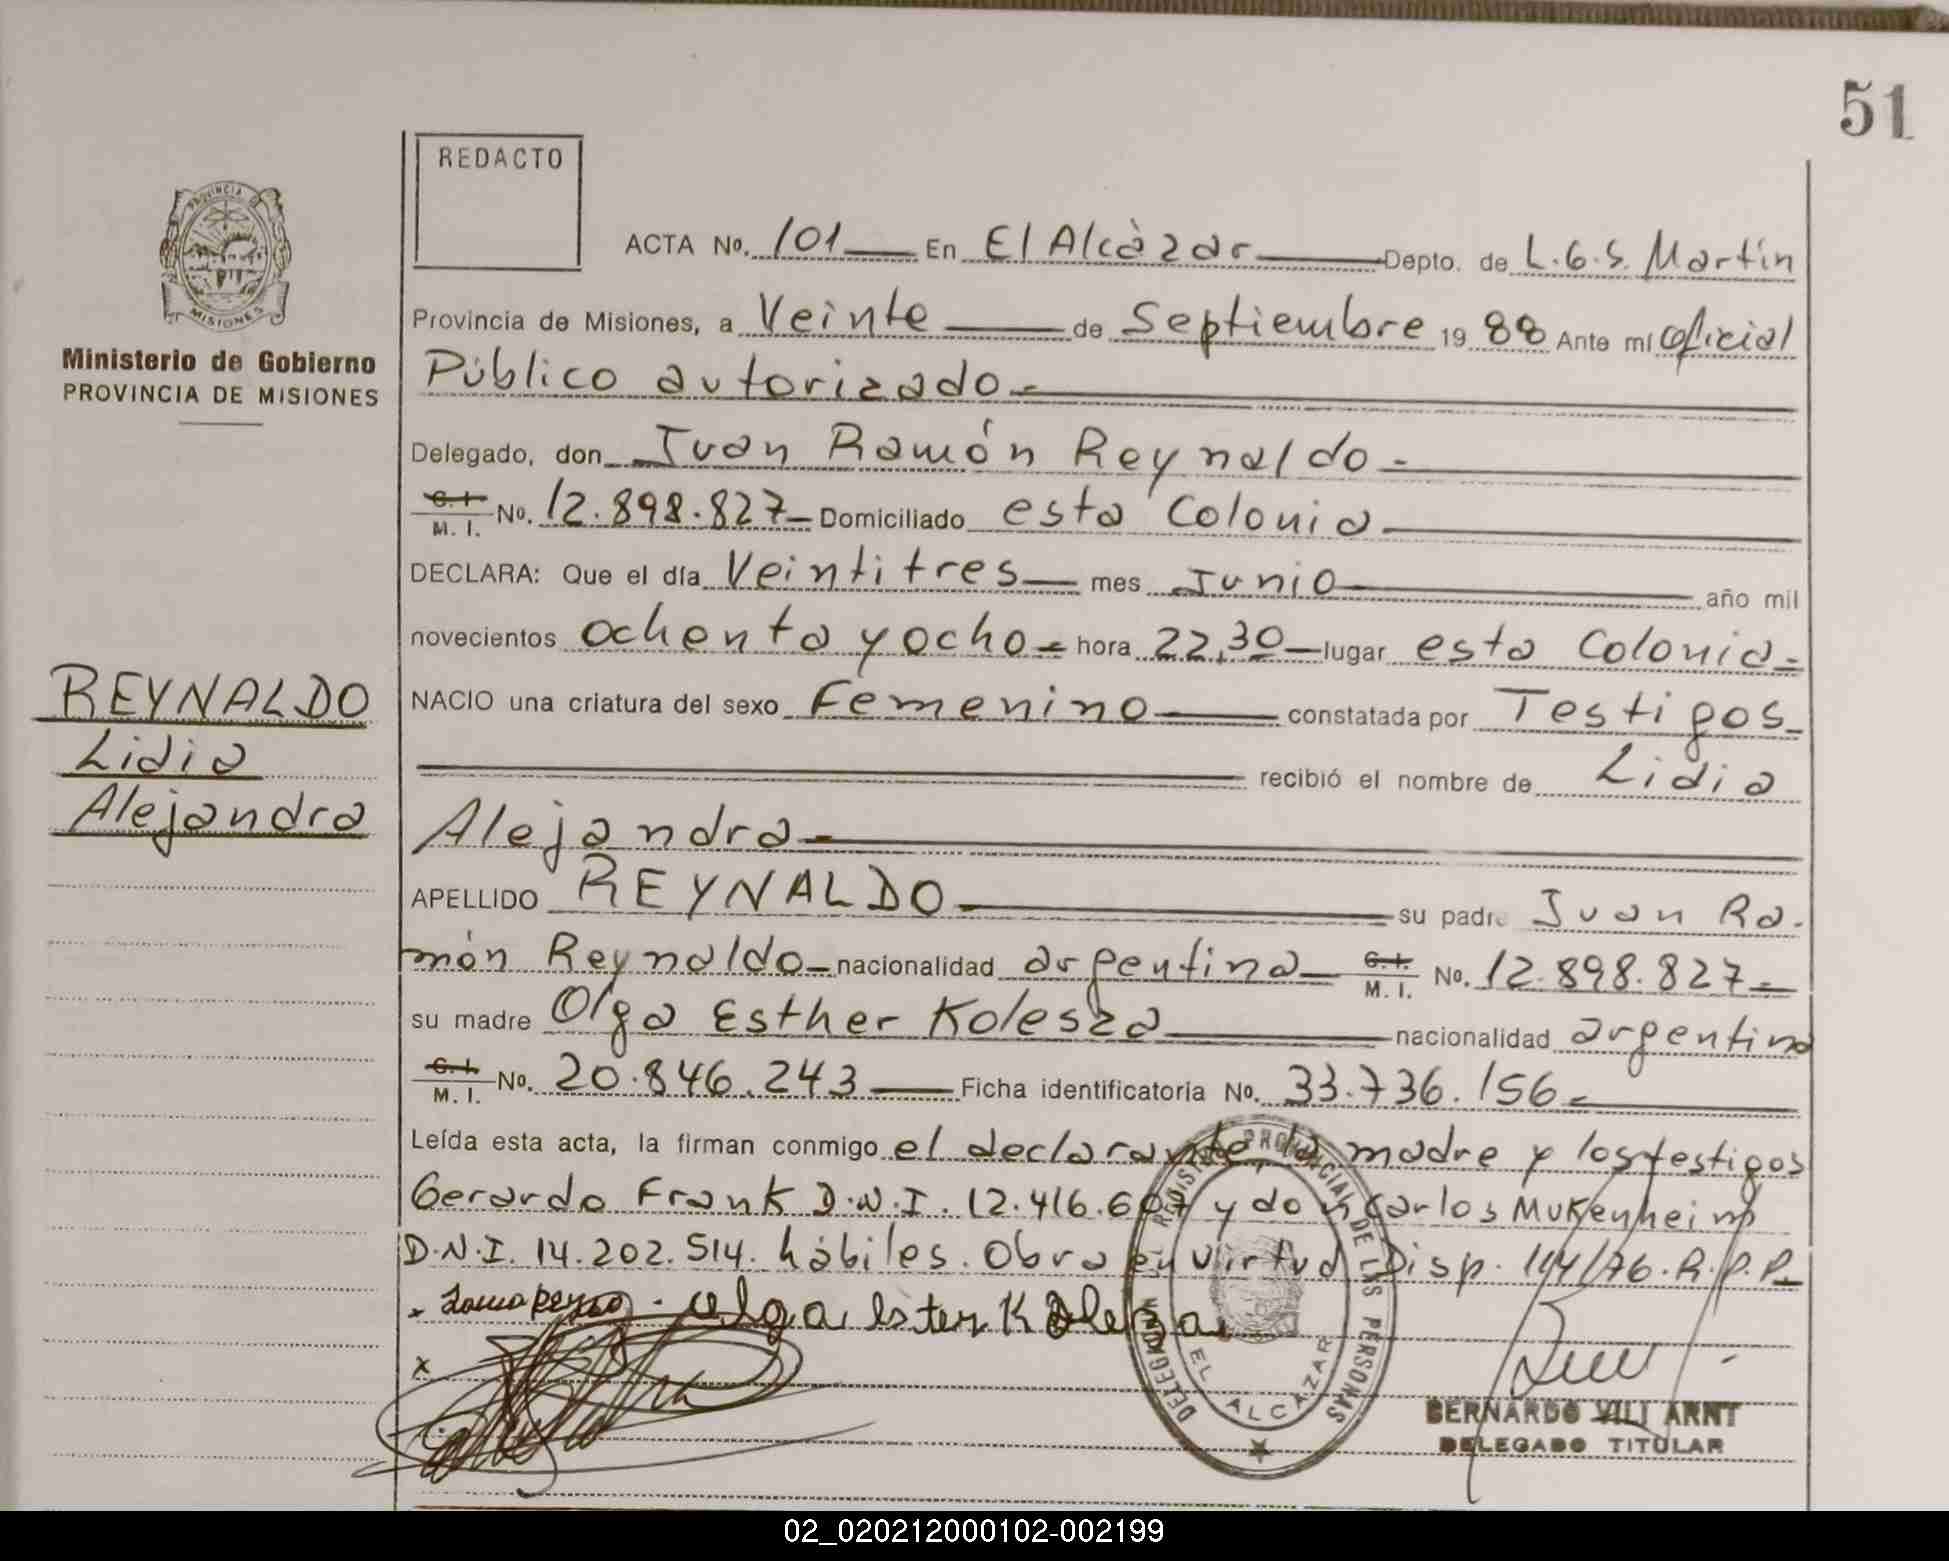 51
REDACTO
PROVINCIA DE
MISIONES
Ministerio de Gobierno
PROVINCIA DE MISIONES
ACTA No. 101 En El Alcàzar Depto. de L.G.S. Martín
Provincia de Misiones, a Veinte de Septiembre 19 88 Ante mí oficial
Público autorizado.-
Delegado, don Juan Ramón Reynaldo.-
C. I. / M. I. No. 12.898.827 Domiciliado esta Colonia
DECLARA: Que el día Veintitres mes Junio año mil
novecientos ochenta y ocho hora 22,30 lugar esta Colonia.-
NACIO una criatura del sexo Femenino constatada por Testigos
recibió el nombre de Lidia
Alejandra
APELLIDO REYNALDO su padre Juan Ra-
món Reynaldo nacionalidad argentina C. I. / M. I. No. 12.898.827
su madre Olga Esther Kolesza nacionalidad argentina
C. I. / M. I. No. 20.846.243 Ficha identificatoria No. 33.736.156
Leída esta acta, la firman conmigo el declarante la madre y los testigos
Gerardo Frank D.N.I. 12.416.607 y don Carlos Mukenheim
D.N.I. 14.202.514. hábiles. Obra en virtud Disp. 144/76.R.P.P.
olga ester Kolesza
x
REYNALDO
Lidia
Alejandra
DELEGACION REGISTRO PROVINCIAL DE LAS PERSONAS
EL ALCAZAR
BERNARDO VILI ARNT
DELEGADO TITULAR
02_020212000102-002199